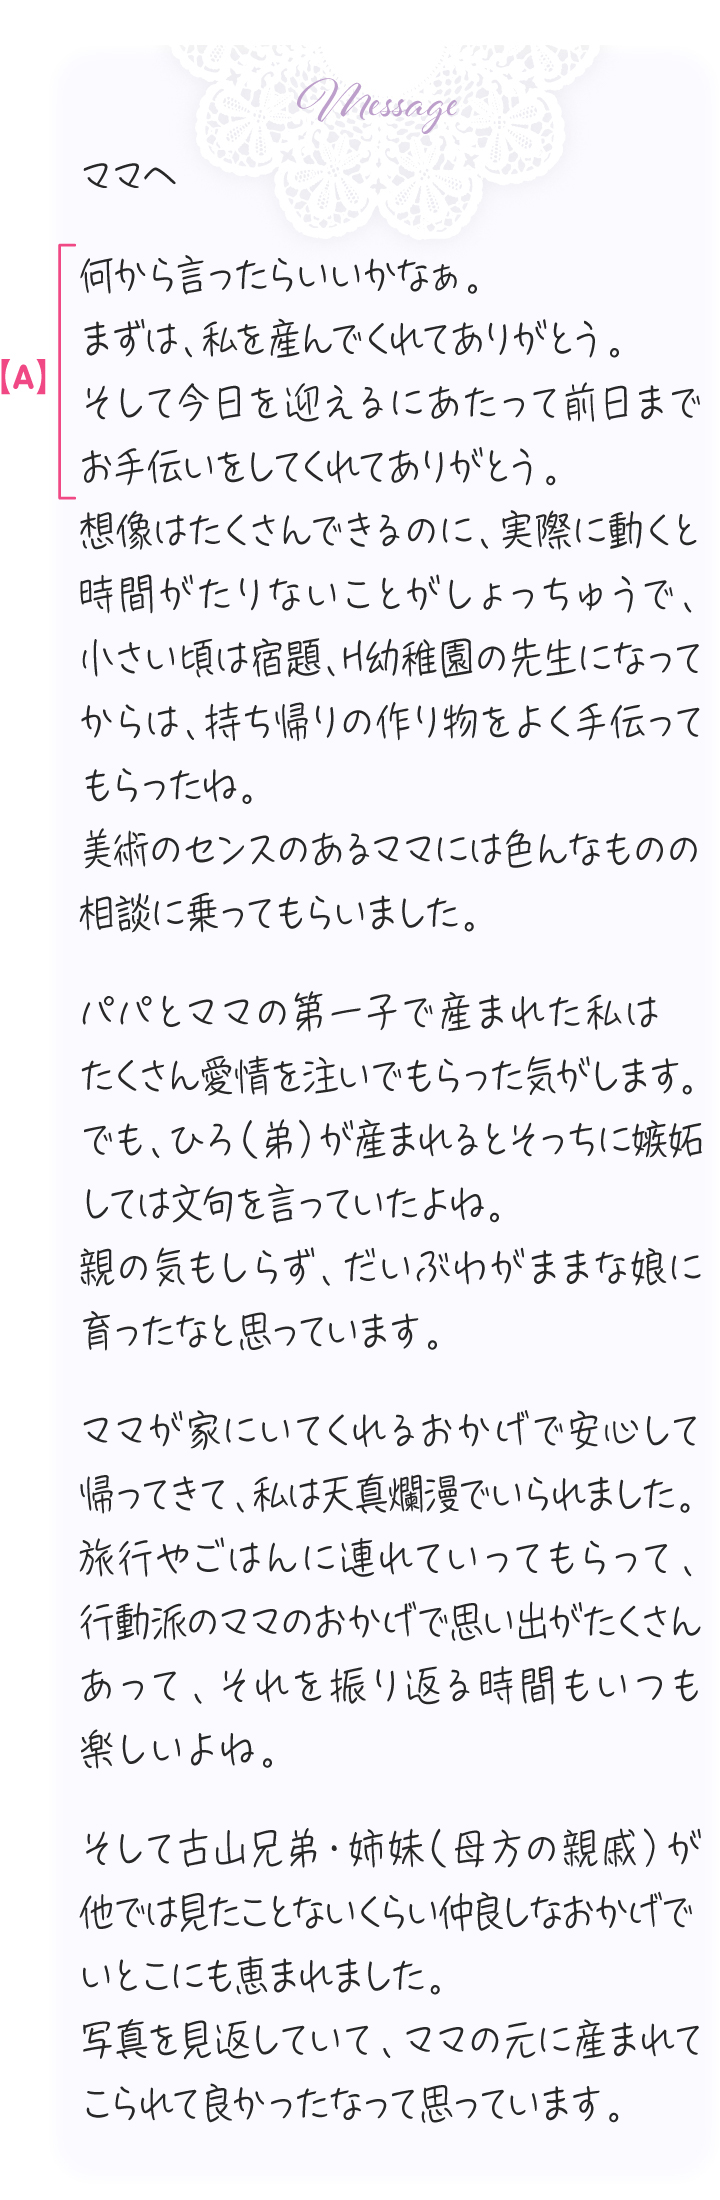 Message
ママへ
何から言ったらいいかなぁ。
まずは、私を産んでくれてありがとう。
【A】
そして今日を迎えるにあたって前日まで
お手伝いをしてくれてありがとう。
想像はたくさんできるのに、実際に動くと
時間がたりないことがしょっちゅうで、
小さい頃は宿題、H幼稚園の先生になって
からは、持ち帰りの作り物をよく手伝って
もらったね。
美術のセンスのあるママには色んなものの
相談に乗ってもらいました。
パパとママの第一子で産まれた私は
たくさん愛情を注いでもらった気がします。
でも、ひろ(弟)が産まれるとそっちに嫉妬
しては文句を言っていたよね。
親の気もしらず、だいぶわがままな娘に
育ったなと思っています。
ママが家にいてくれるおかげで安心して
帰ってきて、私は天真爛漫でいられました。
旅行やごはんに連れていってもらって、
行動派のママのおかげで思い出がたくさん
あって、それを振り返る時間もいつも
楽しいよね。
そして古山兄弟・姉妹(母方の親戚)が
他では見たことないくらい仲良しなおかげで
いとこにも恵まれました。
写真を見返していて、ママの元に産まれて
こられて良かったなって思っています。